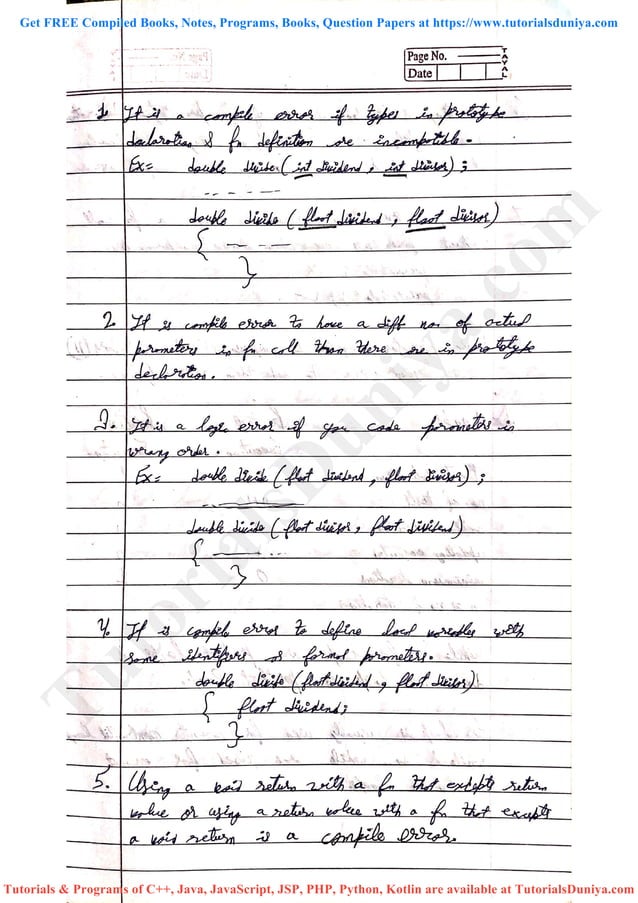 Get FREE Compiled Books, Notes, Programs, Books, Question Papers at https://www.tutorialsduniya.com
Page No.
Date
TAYAL
1. It is a compile error if types in prototype
declaration & fn definition are incompatible.
Ex= double divide (int dividend, int divisor);
double divide (float dividend, float divisor)
{
}
2. It is compile error to have a diff no. of actual
parameters in fn call than there are in prototype
declaration.
3. It is a logic error if you code parameters in
wrong order.
Ex= double divide (float dividend, float divisor);
double divide (float divisor, float dividend)
{
}
4. It is compile error to define local variables with
same identifiers as formal parameters.
double divide (float dividend, float divisor)
{ float dividend;
}
5. Using a void return with a fn that excepts return
value or using a return value with a fn that excepts
a void return is a compile error.
TutorialsDuniya.com
Tutorials & Programs of C++, Java, JavaScript, JSP, PHP, Python, Kotlin are available at TutorialsDuniya.com